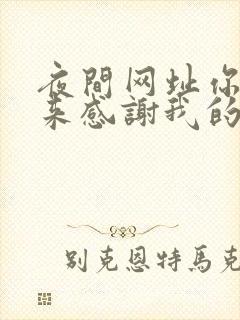 夜間网址你
来感謝我的
别克恩特馬克